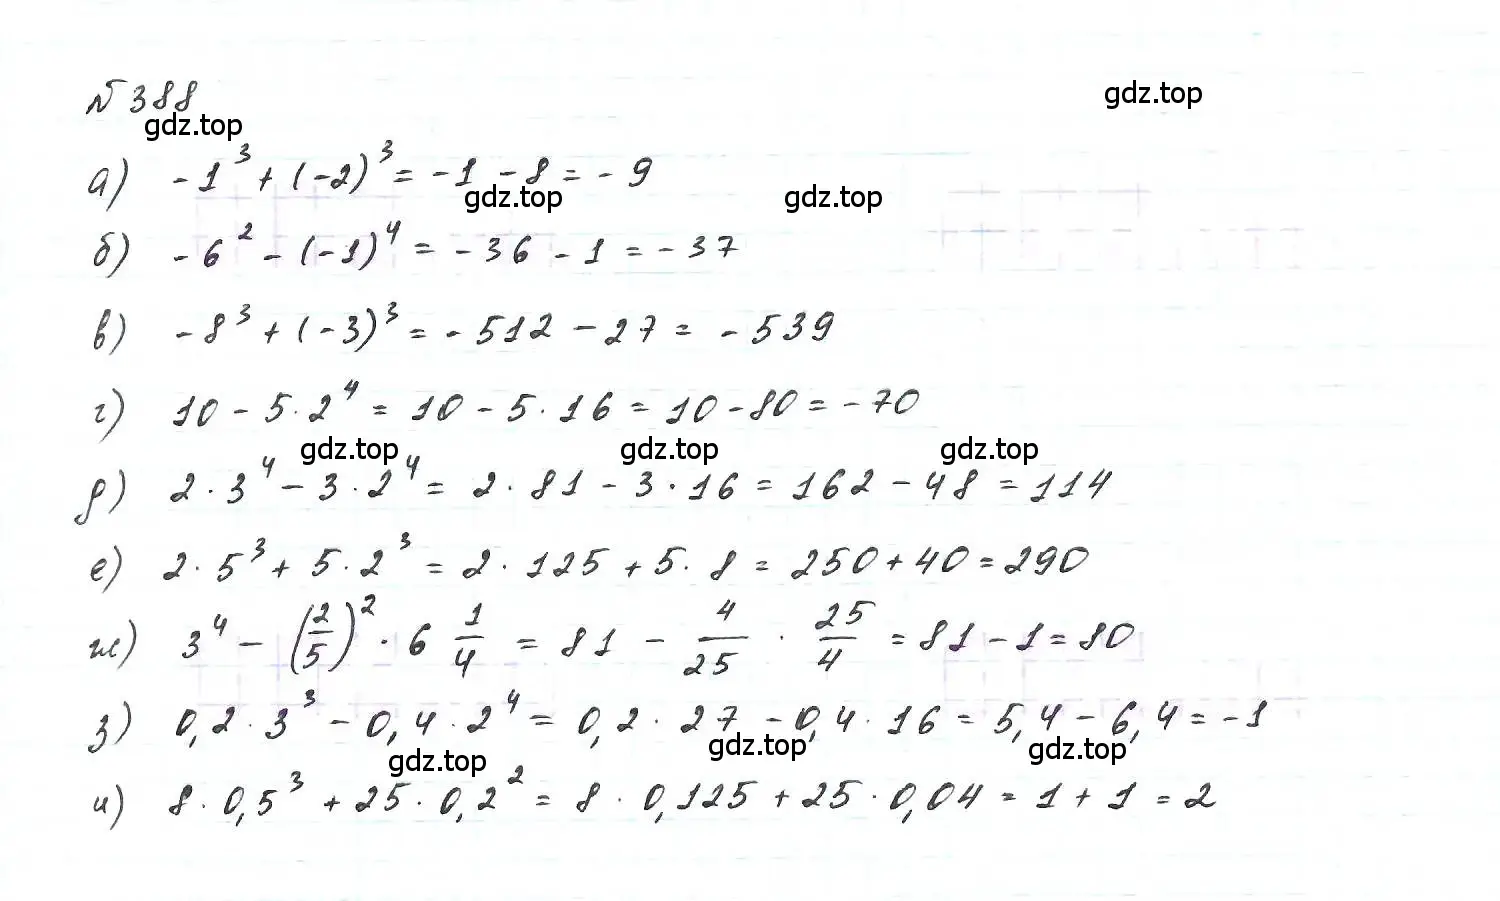 №388
gdz.top
gdz.top
а) -1³ + (-2)³ = -1 - 8 = -9
gdz.top
gdz.top
б) -6² - (-1)⁴ = -36 - 1 = -37
в) -8³ + (-3)³ = -512 - 27 = -539
г) 10 - 5·2⁴ = 10 - 5·16 = 10 - 80 = -70
gdz.top
gdz.top
gdz.top
д) 2·3⁴ - 3·2⁴ = 2·81 - 3·16 = 162 - 48 = 114
е) 2·5³ + 5·2³ = 2·125 + 5·8 = 250 + 40 = 290
ж) 3⁴ - (2/5)²·6 1/4 = 81 - 4/25 · 25/4 = 81 - 1 = 80
з) 0,2·3³ - 0,4·2⁴ = 0,2·27 - 0,4·16 = 5,4 - 6,4 = -1
gdz.top
gdz.top
gdz.top
и) 8·0,5³ + 25·0,2² = 8·0,125 + 25·0,04 = 1 + 1 = 2